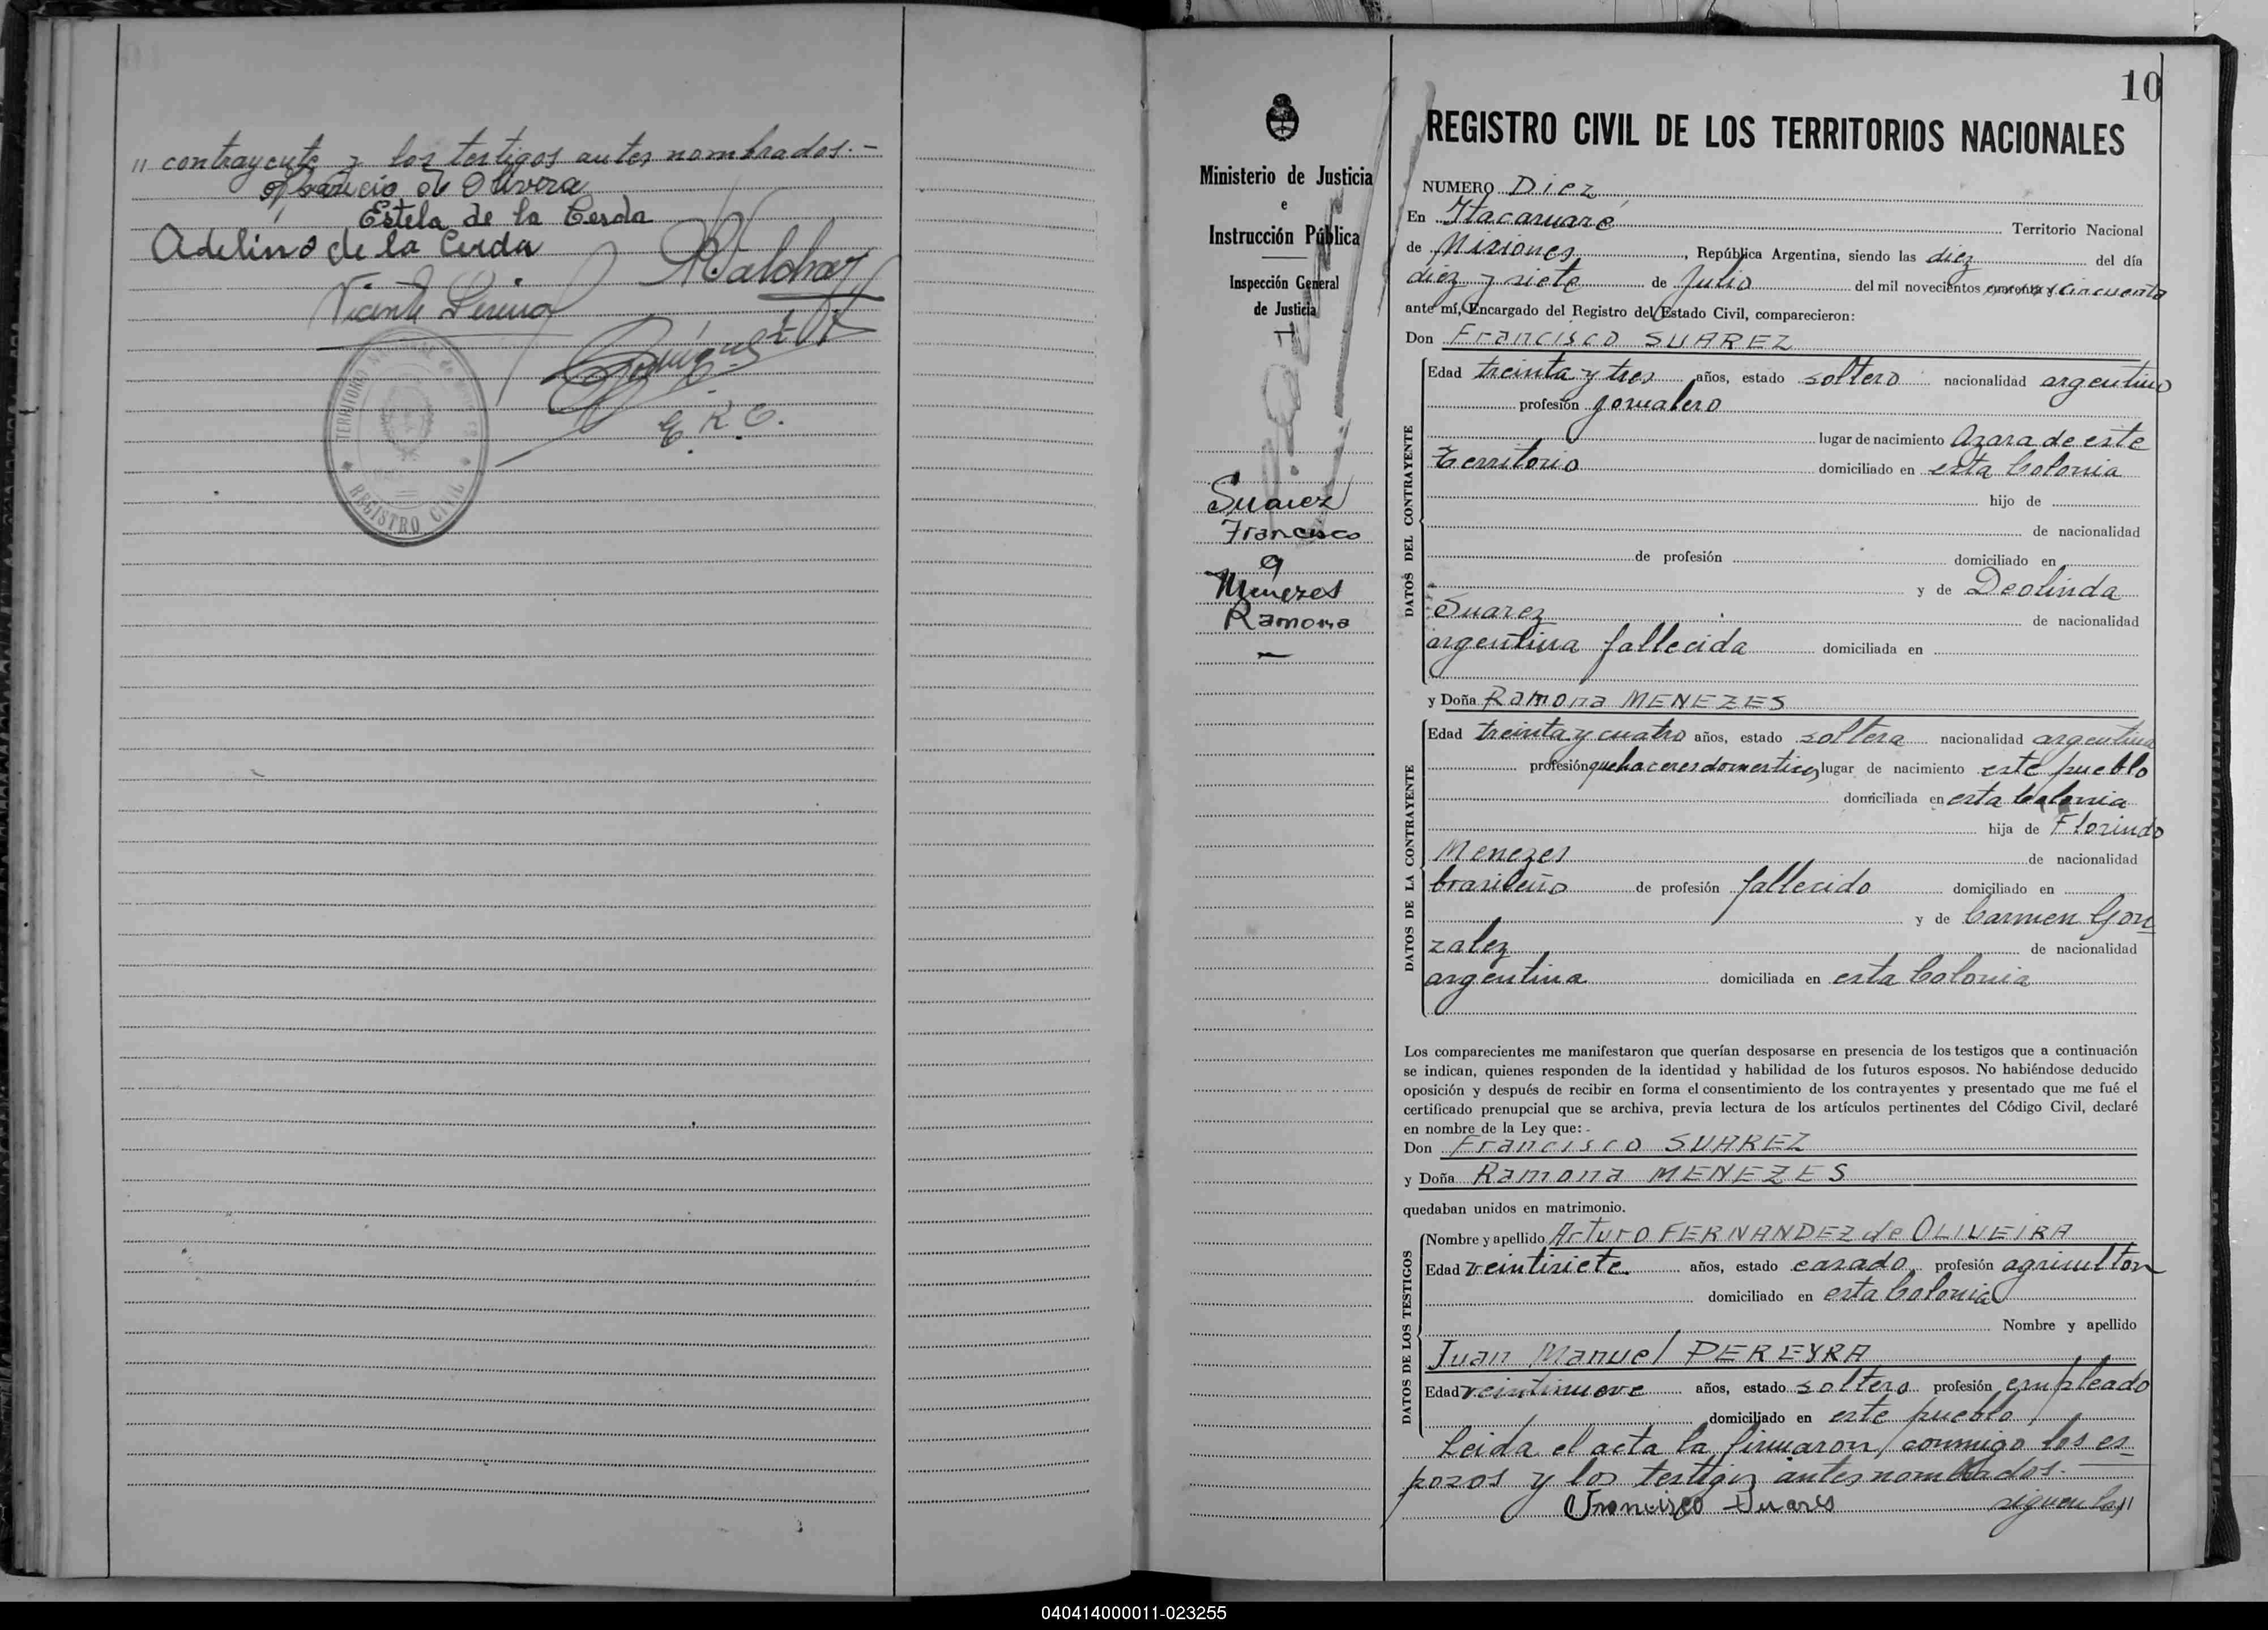 " contrayente y los testigos antes nombrados.-
Aparicio de Olivera
Estela de la Cerda
Adelino de la Cerda
Vicente
E. R. C.
TERRITORIO NACIONAL DE MISIONES
REGISTRO CIVIL
10
Ministerio de Justicia
e
Instrucción Pública
Inspección General
de Justicia
Suarez
Francisco
y
Menezes
Ramona
—
REGISTRO CIVIL DE LOS TERRITORIOS NACIONALES
NUMERO Diez
En Itacaruaré Territorio Nacional
de Misiones, República Argentina, siendo las diez del día
diez y siete de Julio del mil novecientos cuarenta y cincuenta
ante mí, Encargado del Registro del Estado Civil, comparecieron:
Don Francisco SUAREZ
DATOS DEL CONTRAYENTE
Edad treinta y tres años, estado soltero nacionalidad argentino
profesión jornalero
lugar de nacimiento Azara de este
Territorio domiciliado en esta Colonia
hijo de
de nacionalidad
de profesión domiciliado en
y de Deolinda
Suarez de nacionalidad
argentina fallecida domiciliada en
y Doña Ramona MENEZES
DATOS DE LA CONTRAYENTE
Edad treinta y cuatro años, estado soltera nacionalidad argentina
profesión quehaceres domesticos lugar de nacimiento este pueblo
domiciliada en esta Colonia
hija de Florindo
Menezes de nacionalidad
brasileño de profesión fallecido domiciliado en
y de Carmen Gon
zalez de nacionalidad
argentina domiciliada en esta Colonia
Los comparecientes me manifestaron que querían desposarse en presencia de los testigos que a continuación
se indican, quienes responden de la identidad y habilidad de los futuros esposos. No habiéndose deducido
oposición y después de recibir en forma el consentimiento de los contrayentes y presentado que me fué el
certificado prenupcial que se archiva, previa lectura de los artículos pertinentes del Código Civil, declaré
en nombre de la Ley que: -
Don Francisco SUAREZ
y Doña Ramona MENEZES
quedaban unidos en matrimonio.
DATOS DE LOS TESTIGOS
Nombre y apellido Arturo FERNANDEZ de OLIVEIRA
Edad veintisiete años, estado casado profesión agricultor
domiciliado en esta Colonia
Nombre y apellido
Juan Manuel PEREYRA
Edad veintinueve años, estado soltero profesión empleado
domiciliado en este pueblo
Leida el acta la firmaron conmigo los es-
posos y los testigos antes nombrados.-
Francisco Suares siguen las "
040414000011-023255